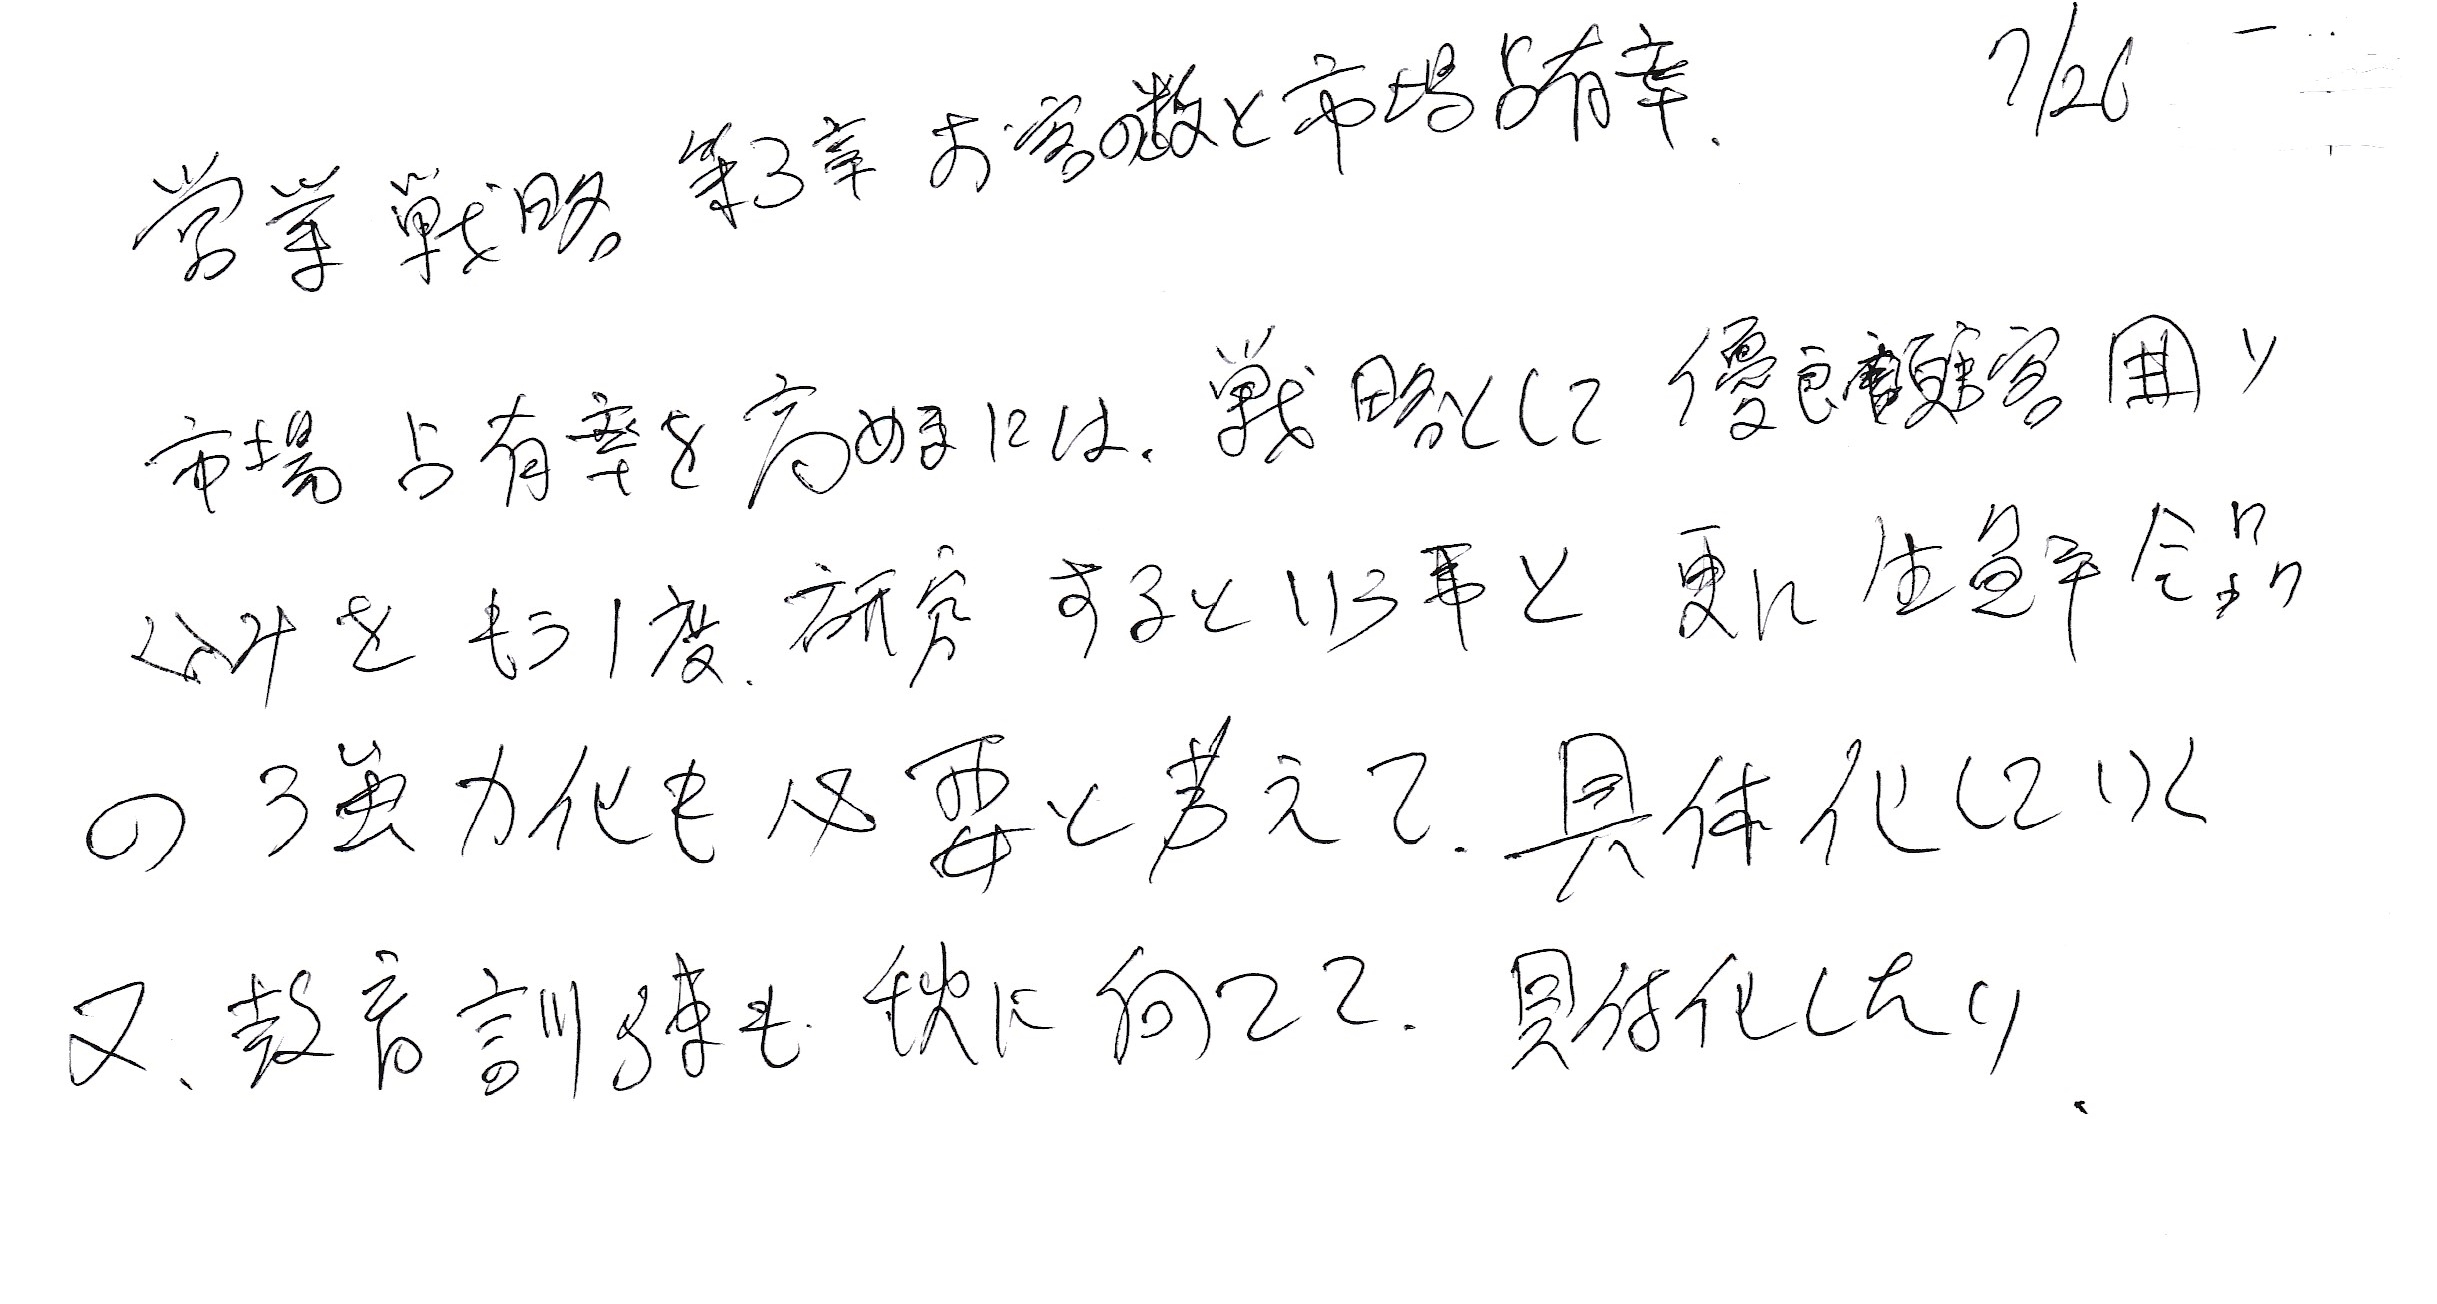 7/26
営業戦略 第3章 お客の数と市場占有率.
市場占有率を高めるには、戦略として優良顧客囲い
込みをもう1度、研究するという事と更に生鮮食品
の強力化も必要と考えて、具体化していく
又、教育訓練も秋に向って、具体化したい.